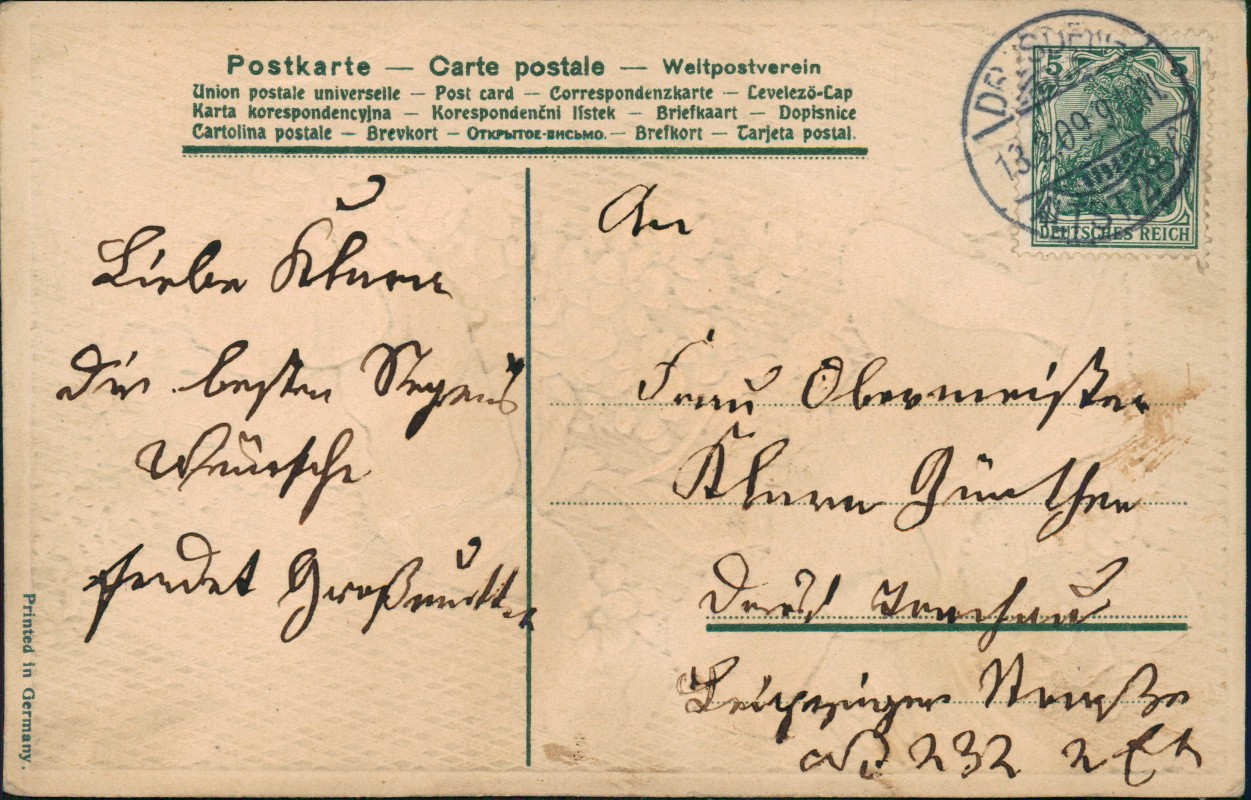 Postkarte — Carte postale — Weltpostverein
Union postale universelle — Post card — Correspondenzkarte — Levelező-Lap
Karta korespondencyjna — Korespondenční lístek — Briefkaart — Dopisnice
Cartolina postale — Brevkort — Открытое-письмо. — Brefkort — Tarjeta postal.
Liebe Klara
die besten Segens
Wünsche
sendet Großmutter
An
Frau Obermeister
Klara Günther
Trachau
Leipziger Straße
No 232 2 Et
5 5
DEUTSCHES REICH
DRESDEN
13. 2.09.9
ALTST.
Printed in Germany.